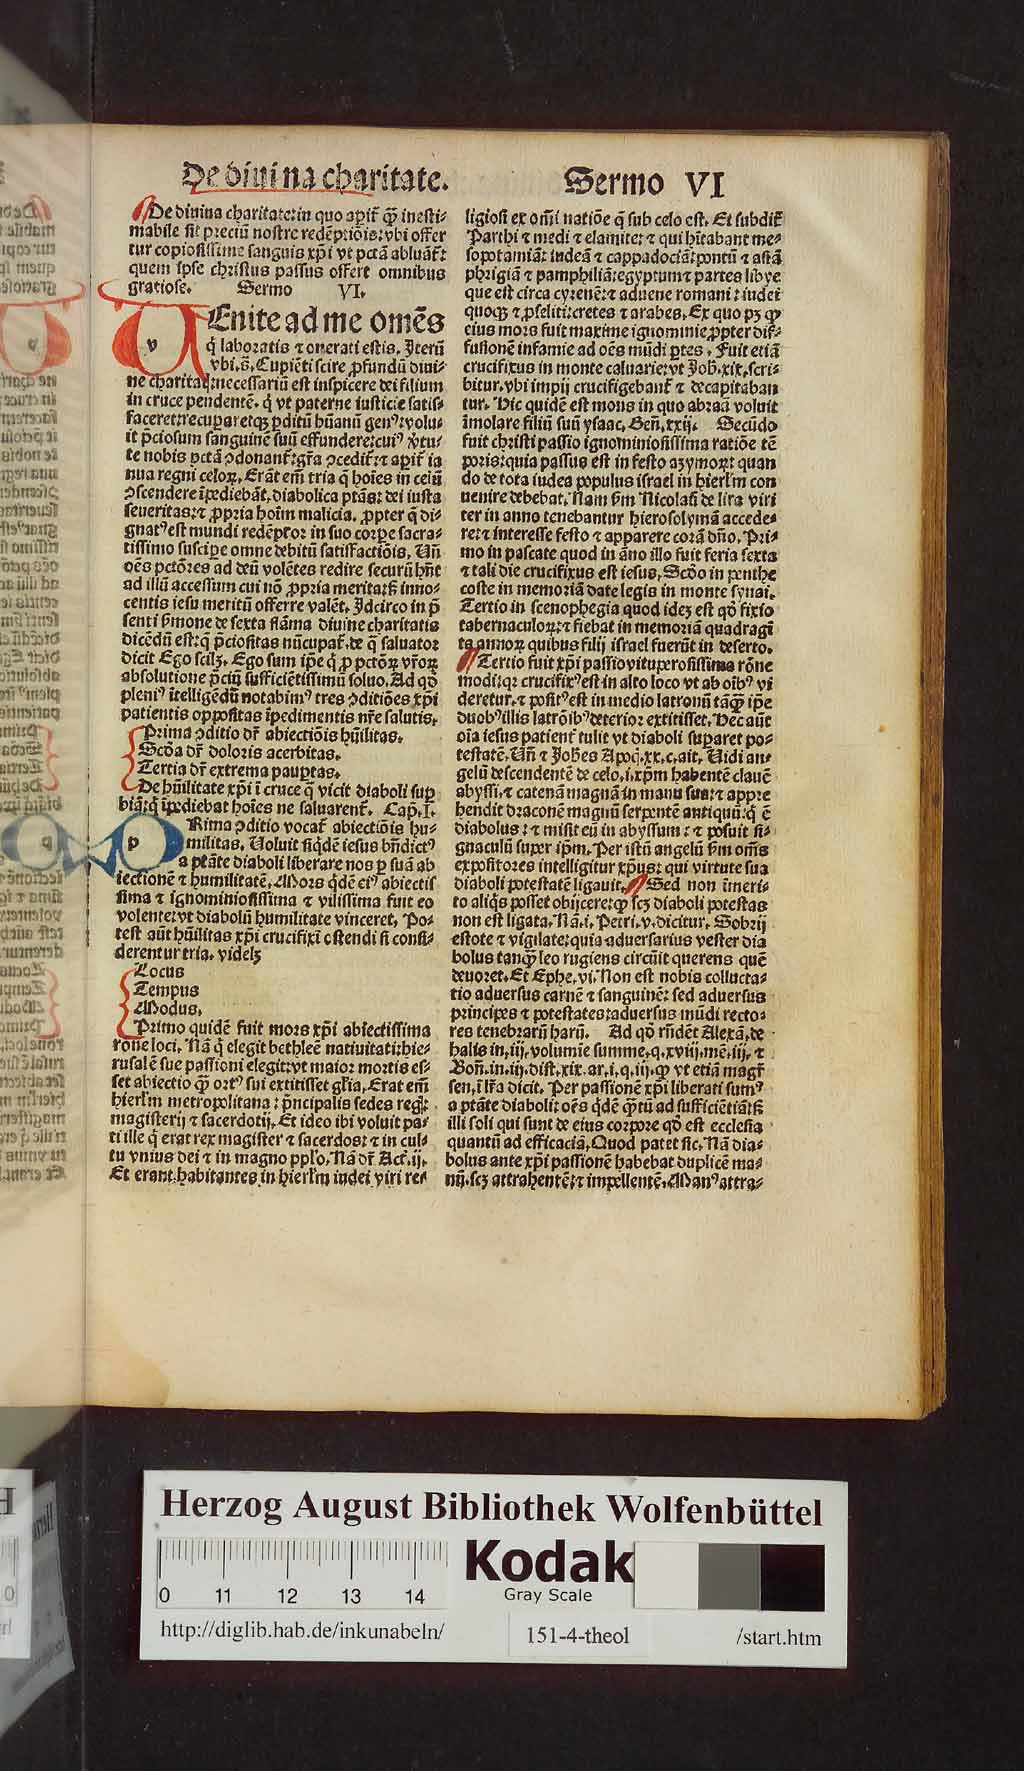 De diuina charitate.
Sermo VI
De diuina charitate: in quo aperit᷑ ꝙ̄ inesti-
mabile sit preciū nostre redēptiōis: vbi offer
tur copiosissime sanguis xp̄i vt pctā abluāt᷑:
quem ipse christus passus offert omnibus
gratiose. Sermo VI.
VEnite ad me omēs
v
q̇ laboratis ⁊ onerati estis. Iterū
vbi.s̄. Cupiēti scire ꝓfundū diui-
ne charitaꝭ: necessariū est inspicere dei filium
in cruce pendentē. q̇ vt paterne iusticie satis-
faceret: recuꝑaretqꝫ ꝑditū hūanū genꝰ: volu-
it p̄ciosum sanguinē suū effundere: cuiꝰ v̓tu-
te nobis pctā ↄdonant᷑: gr̄a ↄcedit᷑: ⁊ aꝑit᷑ ia
nua regni celoꝝ. Erāt em̄ tria q̇ hoīes in celū
ↄscendere īpediebāt. diabolica ptās: dei iusta
seueritas: ⁊ ꝓpria hoīm malicia. ꝓpter q̄ di-
gnatꝰ est mundi redēptor in suo corꝑe sacra-
tissimo suscipe omne debitū satisfactiōis. Uñ
oēs pctōres ad deū volētes redire securū hñt
ad illū accessum cui nō ꝓpria merita: sꝫ inno-
centis iesu meritū offerre valēt. Idcirco in p̄
senti s̄mone de sexta flāma diuine charitatis
dicēdū est: q̄ p̄ciositas nūcupat᷑. de q̄ saluator
dicit Ego scilꝫ. Ego sum ip̄e q̇ ꝓ pctōꝝ vr̄oꝝ
absolutione p̄ciū sufficiētissimū soluo. Ad qđ
pleniꝰ ītelligēdū notabimꝰ tres ↄditiōes xp̄i
patientis oppositas īpedimentis nr̄e salutis.
Prima ↄditio dr̄ abiectiōis hūilitas.
Scđa dr̄ doloris acerbitas.
Tertia dr̄ extrema pauꝑtas.
De hūilitate xp̄i ī cruce q̄ vicit diaboli suꝑ
biā: q̇ īpediebat hoīes ne saluarent᷑. Cap̄.I.
p
Rima ↄditio vocat᷑ abiectiōis hu-
militas. Uoluit siqđē iesus bn̄dictꝰ
a ptāte diaboli liberare nos ꝑ suā ab
iectionē ⁊ humilitatē. Mors qđē eiꝰ abiectis
sima ⁊ ignominiosissima ⁊ vilissima fuit eo
volente: vt diabolū humilitate vinceret. Po-
test aūt hūilitas xp̄i crucifixi ostendi si consi-
derentur tria. videlꝫ
Locus
Tempus
Modus.
Primo quidē fuit mors xp̄i abiectissima
rōne loci. Nā q̇ elegit bethleē natiuitati: hie-
rusalē sue passioni elegit: vt maior mortis es-
set abiectio ꝙ̄ ortꝰ sui extitisset gl̄ia. Erat em̄
hierl̄m metropolitana: p̄ncipalis sedes regl̄:
magisterij ⁊ sacerdotij. Et ideo ibi voluit pa-
ti ille q̇ erat rex magister ⁊ sacerdos: ⁊ in cul-
tu vnius dei ⁊ in magno ppl̄o. Nā dr̄ Act᷑.ij.
Et erant habitantes in hierl̄m iudei viri re-
ligiosi ex om̄i natiōe q̄ sub celo est. Et subdit᷑
Parthi ⁊ medi ⁊ elamite: ⁊ qui hītabant me-
sopotamiā: iudeā ⁊ cappadociā: pontū ⁊ asiā
phrigiā ⁊ pamphiliā: egyptum: ⁊ partes libye
que est circa cyrenē: ⁊ aduene romani: iudei
quoqꝫ ⁊ ꝓseliti: cretes ⁊ arabes. Ex quo pꝫ ꝙ
eius mors fuit maxime ignominie ꝓpter dif-
fusionē infamie ad oēs mūdi ꝑtes. Fuit etiā
crucifixus in monte caluarie: vt Joh̄.xix. scri-
bitur. vbi impij crucifigebant᷑ ⁊ decapitaban
tur. Hic quidē est mons in quo abraā voluit
īmolare filiū suū ysaac. Gen̄.xxij. Secūdo
fuit christi passio ignominiosissima ratiōe tē
poris: quia passus est in festo azymoꝝ: quan
do de tota iudea populus israel in hierl̄m con
uenire debebat. Nam s̄m Nicolaū de lira viri
ter in anno tenebantur hierosolymā accede-
re: ⁊ interesse festo ⁊ apparere corā dño. Pri-
mo in pascate quod in āno illo fuit feria sexta
⁊ tali die crucifixus est iesus. Scđo in penthe
coste in memoriā date legis in monte synai.
Tertio in scenophegia quod ideꝫ est qđ fixio
tabernaculoꝝ: ⁊ fiebat in memoriā quadragī
ta annoꝝ quibus filij israel fuerūt in deserto.
Tertio fuit xp̄i passio vituꝑosissima rōne
modi: qꝛ crucifixꝰ est in alto loco vt ab oībꝰ vi
deretur. ⁊ positꝰ est in medio latronū tāꝙ̄ ip̄e
duobꝰ illis latrōibꝰ deterior extitisset. Hec aūt
oīa iesus patient᷑ tulit vt diaboli suꝑaret po-
testatē. Uñ ⁊ Joh̄es Apoc̄.xx.c.ait. Uidi an-
gelū descendentē de celo.i.xp̄m habentē clauē
abyssi. ⁊ catenā magnā in manu sua: ⁊ appre
hendit draconē magnū serpentē antiquū: q̇ ē
diabolus: ⁊ misit eū in abyssum: ⁊ posuit si-
gnaculū super ip̄m. Per istū angelū s̄m om̄s
expositores intelligitur xp̄us: qui virtute sua
diaboli potestatē ligauit. Sed non īmeri-
to aliq̇s posset obijcere: ꝙ scꝫ diaboli potestas
non est ligata. Nā.i. Petri.v. dicitur. Sobrij
estote ⁊ vigilate: quia aduersarius vester dia
bolus tanꝙ̄ leo rugiens circūit querens quē
deuoret. Et Ephe.vi. Non est nobis collucta-
tio aduersus carnē ⁊ sanguinē: sed aduersus
principes ⁊ potestates: aduersus mūdi recto-
res tenebrarū harū. Ad qđ rñdēt Alexā.de
halis in.iij. volumine summe.q.xviij.mē.iij. ⁊
Bon̄.in.iij.dist.xix.ar.i.q.iij. ꝙ vt etiā magr̄
sen. ī lr̄a dicit. Per passionē xp̄i liberati sumꝰ
a ptāte diaboli: oēs qđē ꝙ̄tū ad sufficiētiā: sꝫ
illi soli qui sunt de eius corpore qđ est ecclesia
quantū ad efficaciā. Quod patet sic. Nā dia-
bolus ante xp̄i passionē habebat duplicē ma-
nū. scꝫ attrahentē: ⁊ impellentē. Manꝰ attra-
Herzog August Bibliothek Wolfenbüttel
0 11 12 13 14
Kodak
Gray Scale
http://diglib.hab.de/inkunabeln/
151-4-theol
/start.htm